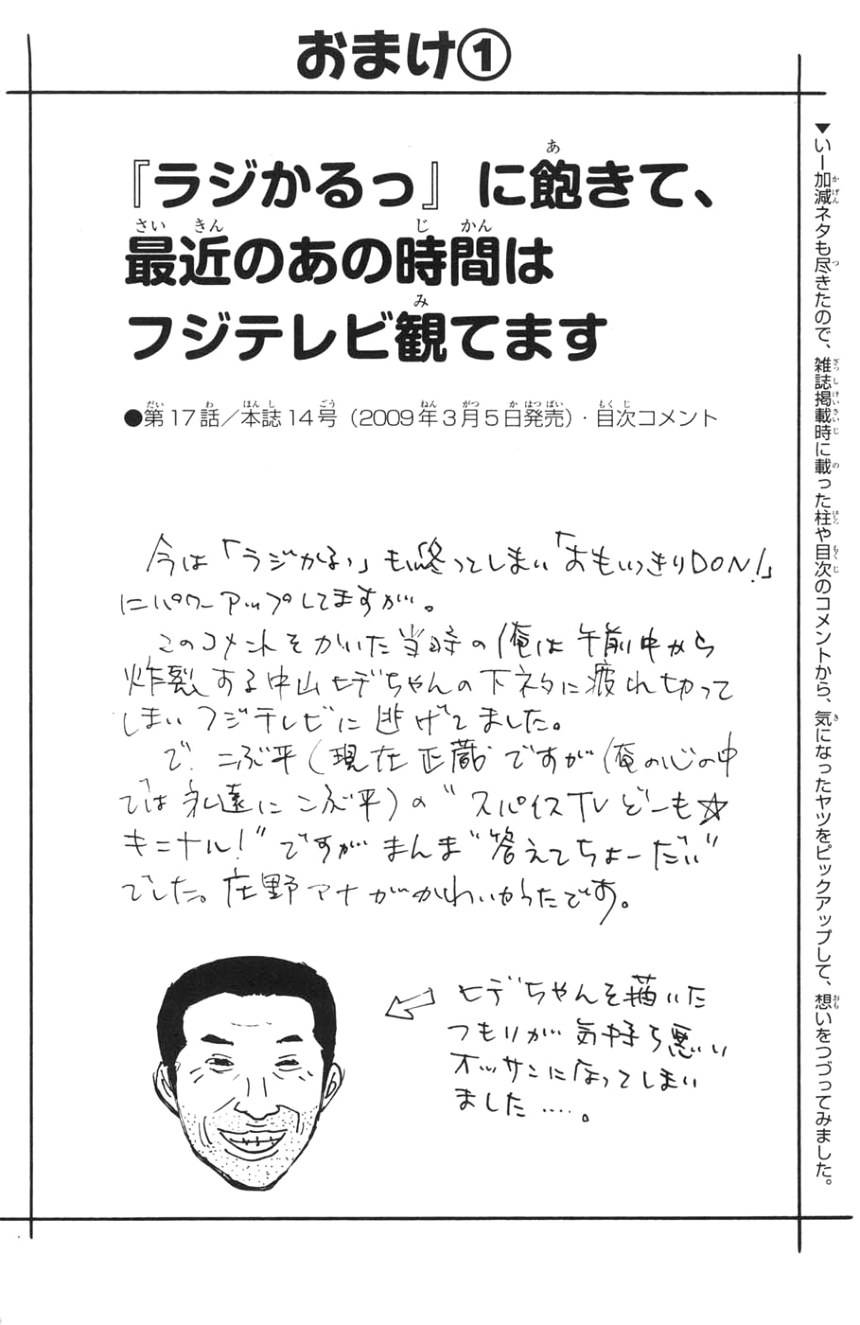 おまけ①
『ラジかるっ』に飽きて、
最近のあの時間は
フジテレビ観てます
●第17話／本誌14号（2009年3月5日発売）・目次コメント
▼いー加減ネタも尽きたので、雑誌掲載時に載った柱や目次のコメントから、気になったヤツをピックアップして、想いをつづってみました。
今は「ラジかるっ」も終ってしまい「おもいっきりDON!」
にパワーアップしてますが。
このコメントをかいた当時の俺は午前中から
炸裂する中山ヒデちゃんの下ネタに疲れ切って
しまいフジテレビに逃げてました。
で、こぶ平(現在正蔵ですが俺の心の中
では永遠にこぶ平)の"スパイスTVどーも☆
キニナル!"ですがまんま"答えてちょーだい"
でした。庄野アナがかわいかったです。
ヒデちゃんを描いた
つもりが気持ち悪い
オッサンになってしまい
ました…。